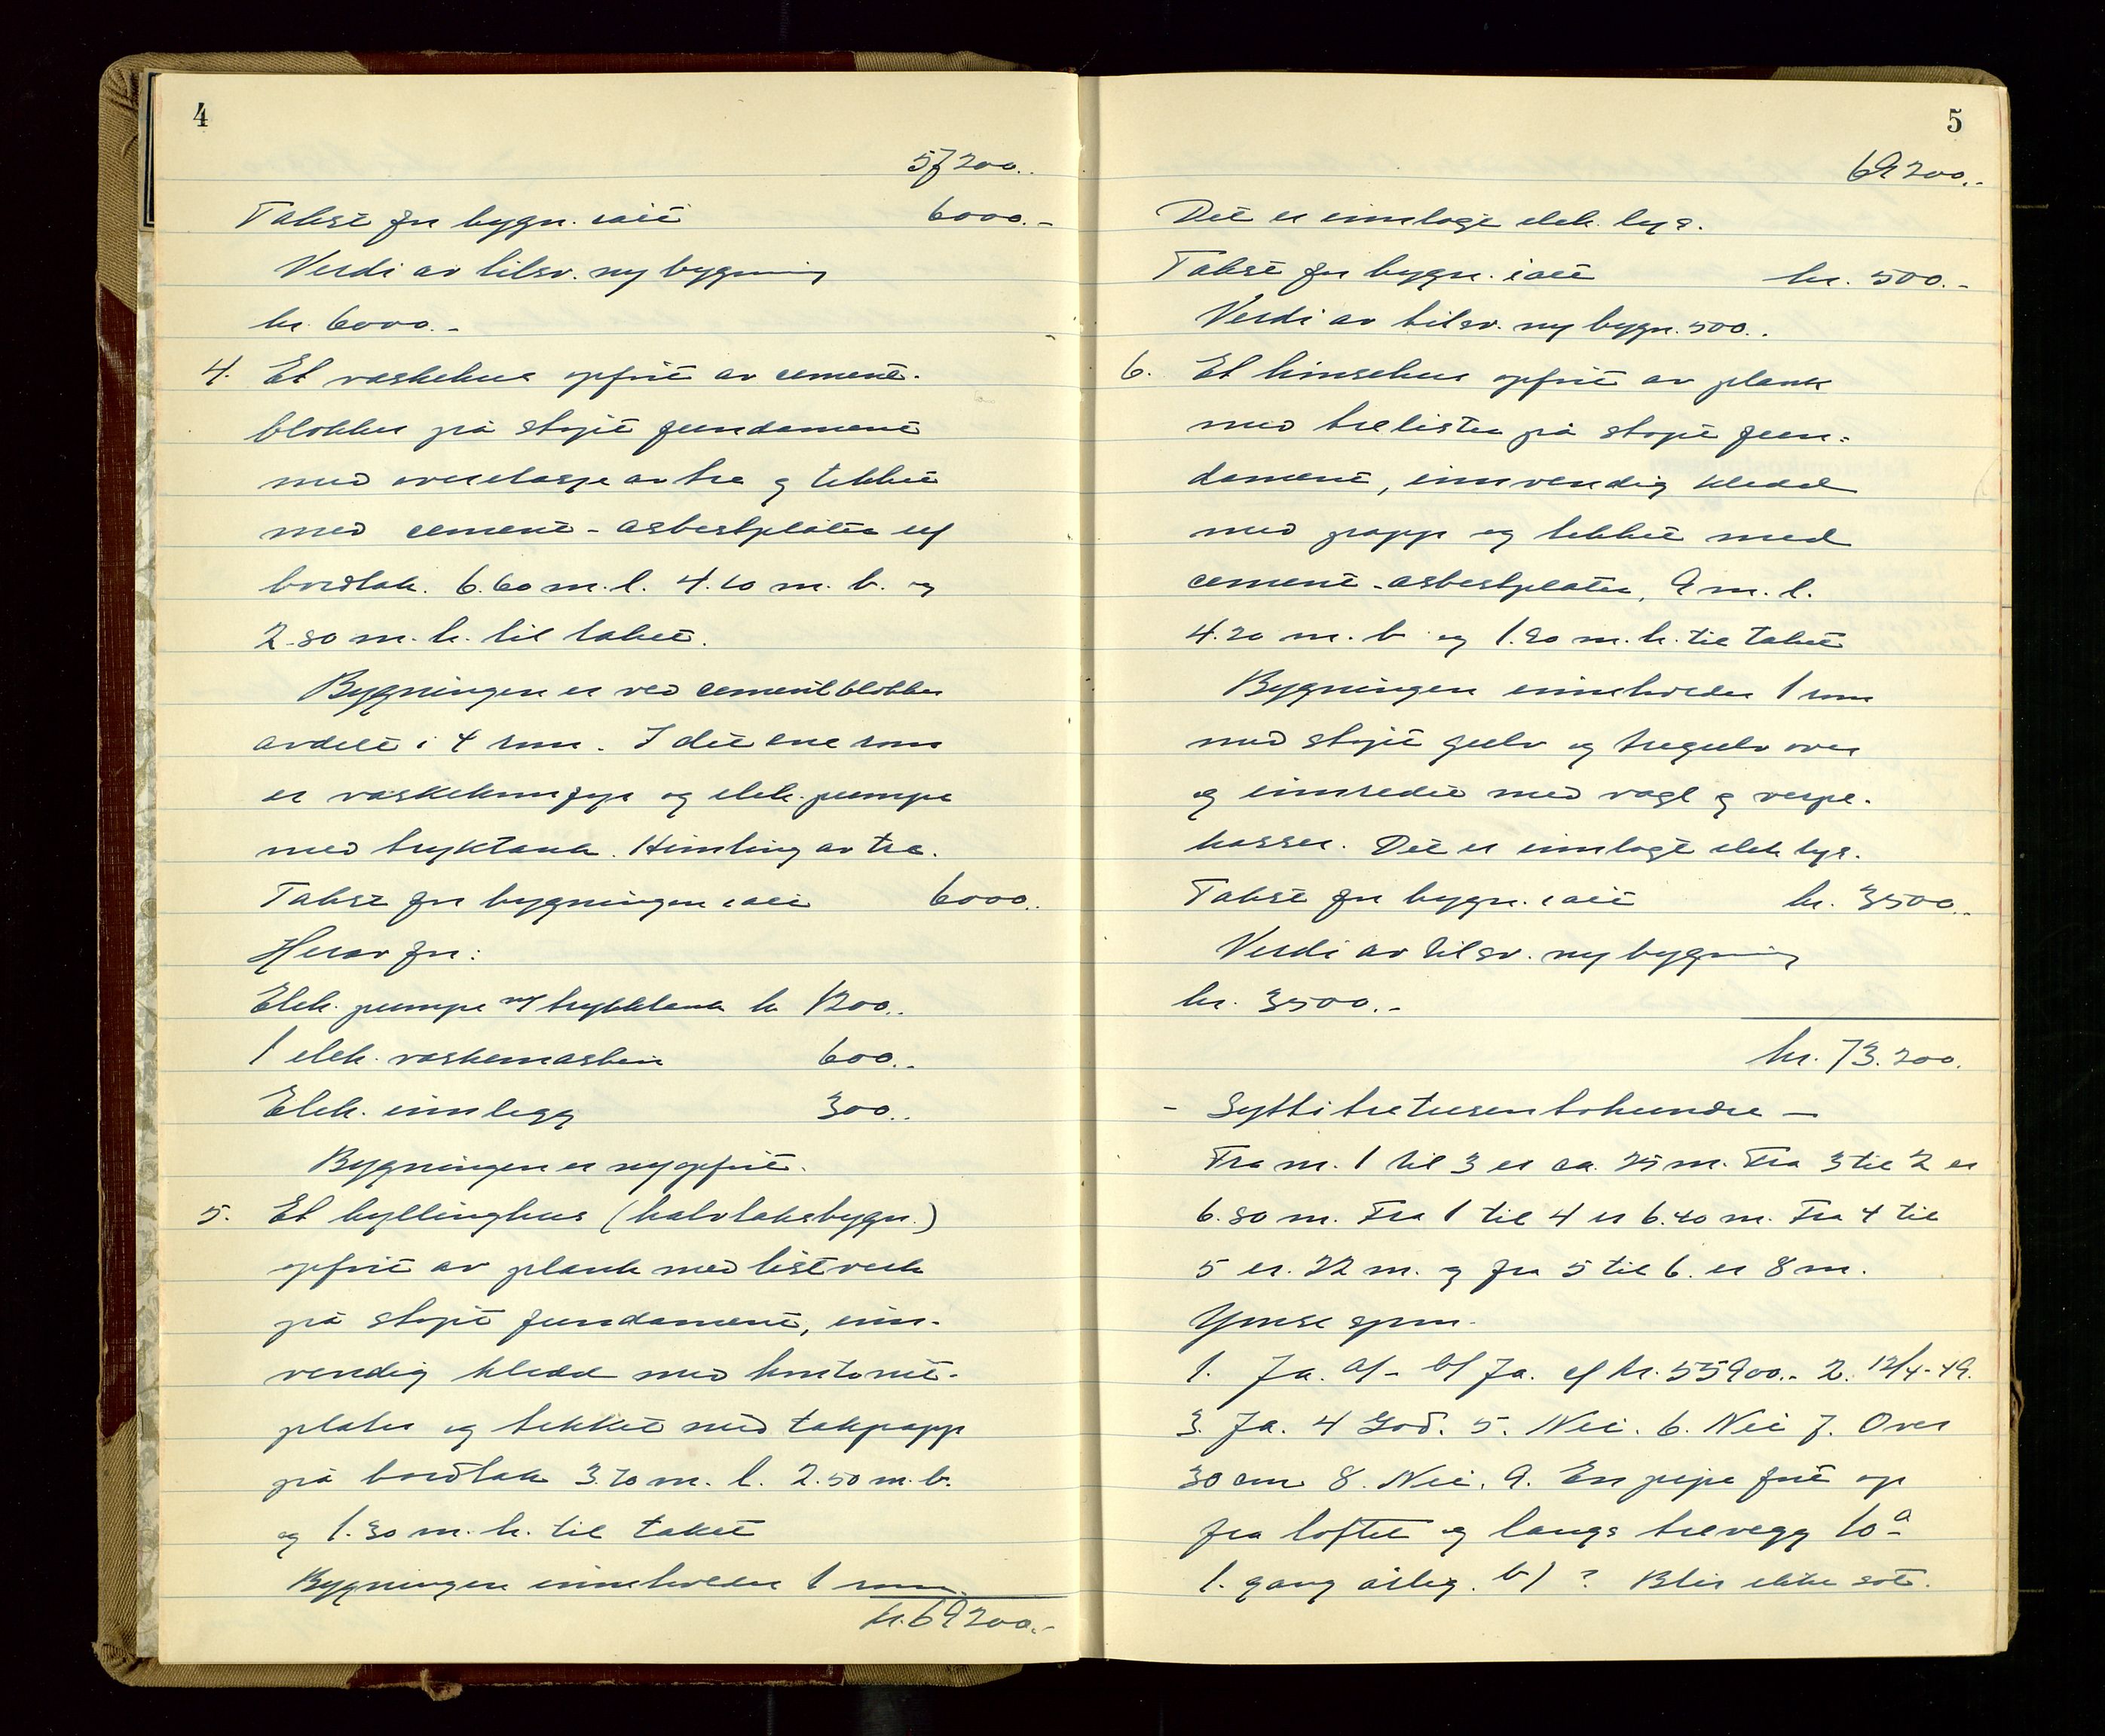 4
57200.-
Takst for bygn. i alt 6000.-
Verdi av tilsv. ny bygning
kr. 6000.-
4. Et vaskehus opført av cement-
blokker på støpt fundament
med overetasje av tre og tekket
med cement-asbestplater uf
bordtak. 6.60 m. l. 4.10 m. b. og
2.80 m. h. til taket.
Bygningen er ved cementblokker
avdelt i 4 rom. I det ene rom
er vaskekumjyr og elek. pumpe
med trykktank. Himling av tre.
Takst for bygningen i alt 6000.-
Herav for:
Elek. pumpe m/ trykktank kr 1200.-
1 elek. vaskemaskin 600.-
Elek. innlegg 300.-
Bygningen er nyopført.
5. Et kyllinghus (halvtaksbygn.)
opført av plank med listverk
på støpt fundament, inn-
vendig kledd med huntonit-
plater og tekket med takpapp
på bordtak 3.70 m. l. 2.50 m. b.
og 1.30 m. h. til taket
Bygningen inneholder 1 rom.
kr. 69200.-
5
69200.-
Det er innlagt elek. lys.
Takst for bygn. i alt kr. 500.-
Verdi av tilsv. ny bygn. 500.-
6. Et hønsehus opført av plank
med trelister på støpt fun-
dament, innvendig kledd
med papp og tekket med
cement-asbestplater, 9 m. l.
4.20 m. b og 1.80 m. h. til taket
Bygningen inneholder 1 rom
med støpt gulv og tregulv over
og innredet med vagl og verpe-
kasser. Det er innlagt elek lys.
Takst for bygn. i alt kr. 3500.-
Verdi av tilsv. ny bygning
kr. 3500.-
kr. 73.200.
- Syttitretusentohundre -
Fra nr. 1 til 3 er ca. 25 m. Fra 3 til 2 er
6.80 m. Fra 1 til 4 er 6.40 m. Fra 4 til
5 er 22 m. og fra 5 til 6. er 8 m.
Ymse spm.
1. Ja. a/- b/ Ja. c/ kr. 55900.- 2. 12/4-49.
3. Ja. 4 God. 5. Nei. 6. Nei 7. Over
30 cm 8. Nei. 9. En pipe ført op
fra loftet og langs trevegg 10 a-
1. gang årlig. b) ? Blir ikke sot.